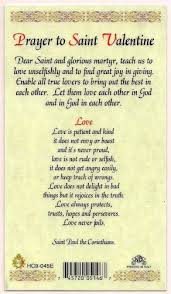 Prayer to Saint Valentine
Dear Saint and glorious martyr, teach us to
love unselfishly and to find great joy in giving.
Enable all true lovers to bring out the best in
each other. Let them love each other in God
and in God in each other.
Love
Love is patient and kind
it does not envy or boast
and it's never proud,
love is not rude or selfish,
it does not get angry easily,
or keep track of wrongs.
Love does not delight in bad
things but it rejoices in the truth.
Love always protects,
trusts, hopes and perseveres.
Love never fails.
Saint Paul the Corinthians.
HC9-045E